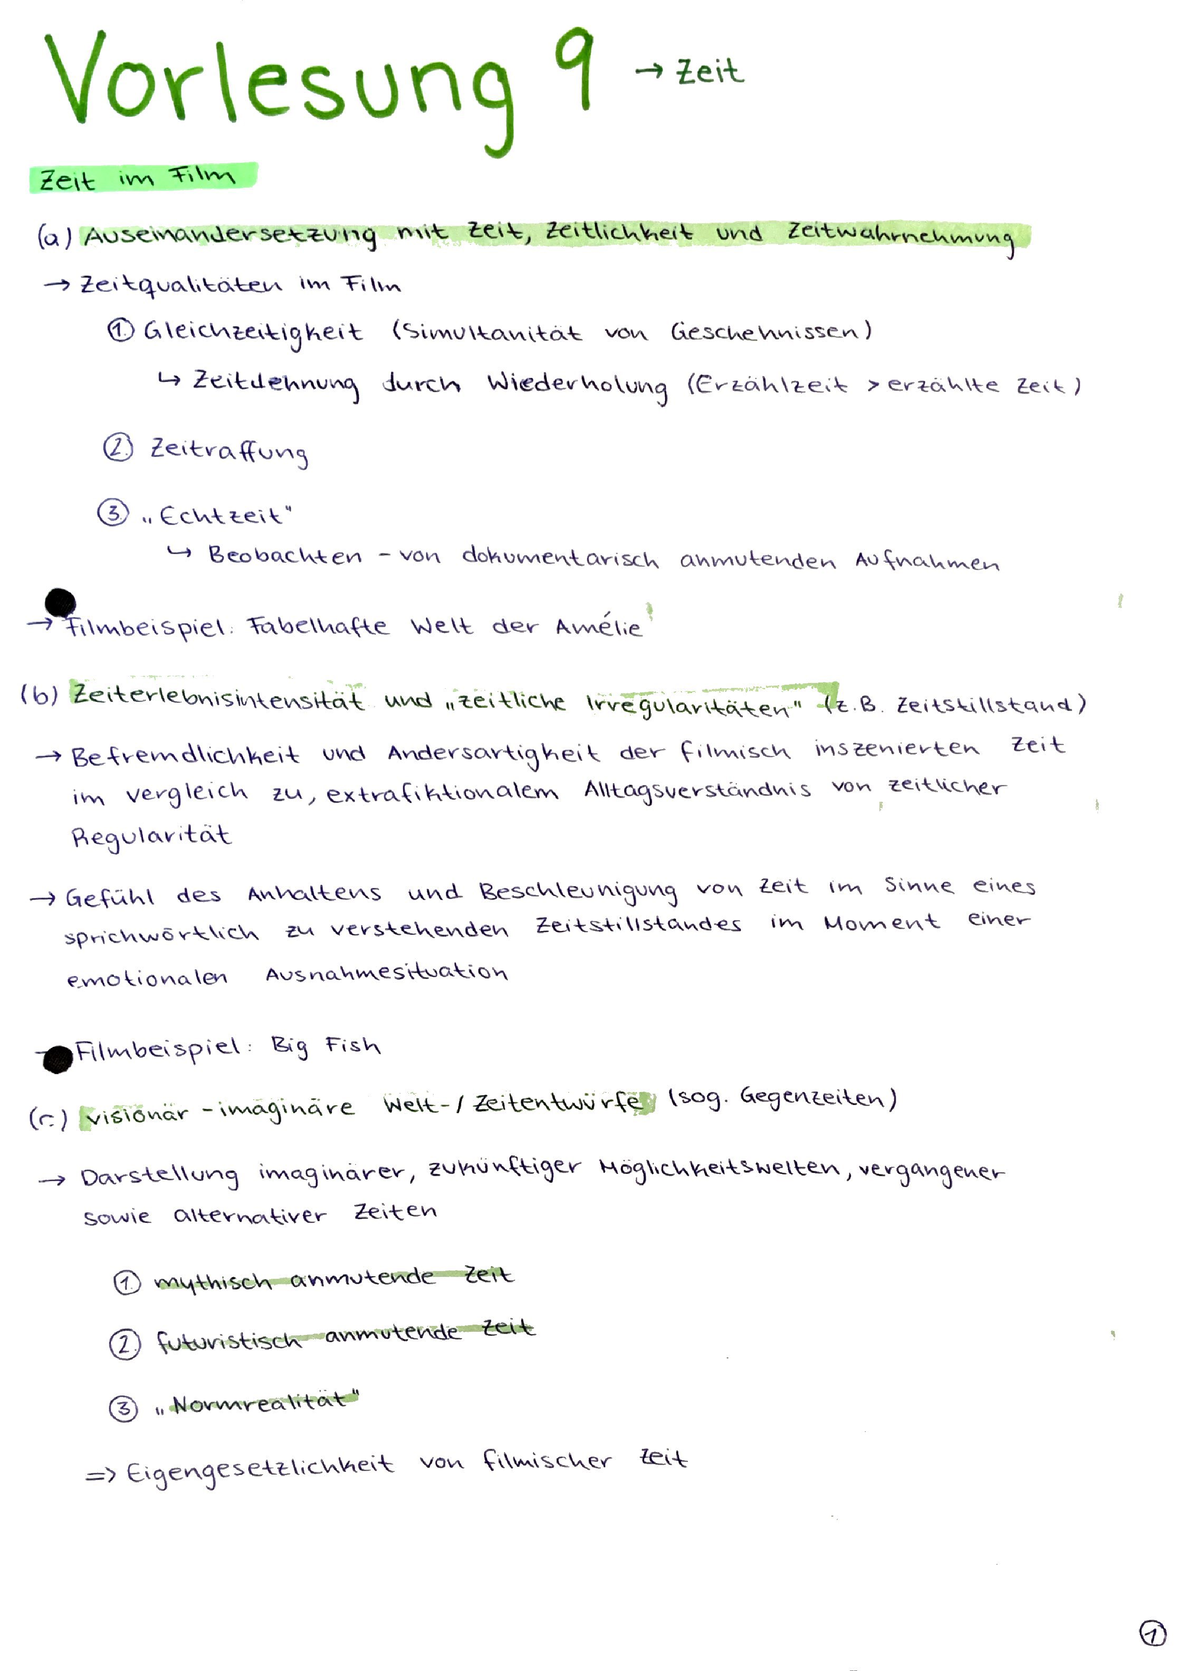 Vorlesung 9 → Zeit
Zeit im Film
(a) Auseinandersetzung mit Zeit, Zeitlichkeit und Zeitwahrnehmung
→ Zeitqualitäten im Film
① Gleichzeitigkeit (Simultanität von Geschehnissen)
↳ Zeitdehnung durch Wiederholung (Erzählzeit > erzählte Zeit)
② Zeitraffung
③ „Echtzeit"
↳ Beobachten - von dokumentarisch anmutenden Aufnahmen
→ Filmbeispiel: Fabelhafte Welt der Amélie
(b) Zeiterlebnisintensität und „zeitliche Irregularitäten" (z.B. Zeitstillstand)
→ Befremdlichkeit und Andersartigkeit der filmisch inszenierten Zeit
im vergleich zu, extrafiktionalem Alltagsverständnis von zeitlicher
Regularität
→ Gefühl des Anhaltens und Beschleunigung von Zeit im Sinne eines
sprichwörtlich zu verstehenden Zeitstillstandes im Moment einer
emotionalen Ausnahmesituation
→ Filmbeispiel: Big Fish
(c) visionär-imaginäre Welt-/Zeitentwürfe (sog. Gegenzeiten)
→ Darstellung imaginärer, zukünftiger Möglichkeitswelten, vergangener
sowie alternativer Zeiten
① mythisch anmutende Zeit
② futuristisch anmutende Zeit
③ „Normrealität"
=> Eigengesetzlichkeit von filmischer Zeit
①